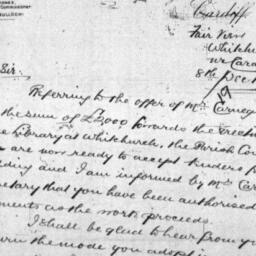 Cardiff
Fair View
Whitchurch
nr Card
8th Dec
19
Sir,
Referring to the offer of Mr Carneg
the sum of £2,000 towards the Erection
Library at Whitchurch, the Parish Cou
are now ready to accept tenders f
ding and I am informed by Mr Car
retary that you have been authorised
ments as the work proceeds.
I shall be glad to hear from y
the mode you adopt in